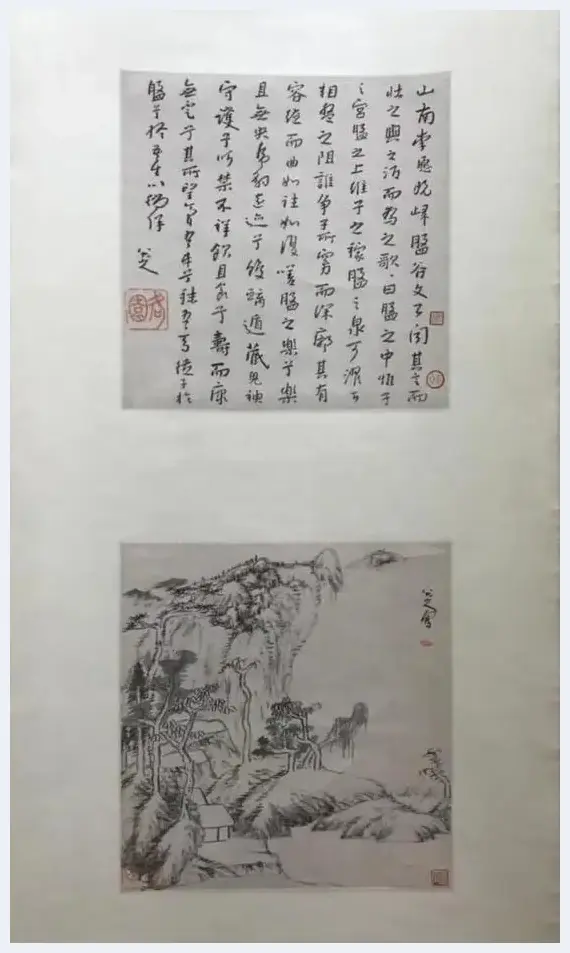 山南李愿歸盤谷文公聞其言而
壯之與之酒而為之歌曰盤之中惟子
之宮盤之上維子之稼盤之泉可濯可
相盤之阻誰爭子所窈而深廓其有
容繚而曲如往如復嗟盤之樂兮樂
且無央虎豹遠迹兮蛟螭遁藏鬼神
守護兮呵禁不祥飲且食兮壽而康
無不足兮奚所望膏吾車兮秣吾馬從子於
盤兮終吾生以徜徉
八大
八大